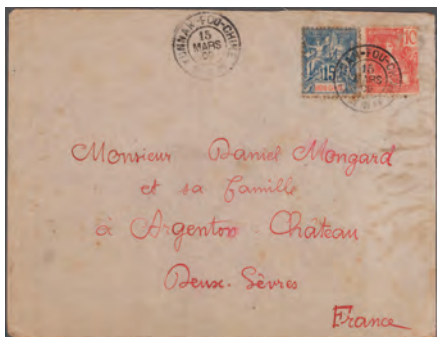 YUNNAN-FOU-CHINE
15
MARS
15
10
15
MARS
Monsieur Daniel Mongard
et sa Famille
à Argenton Château
Deux-Sèvres
France